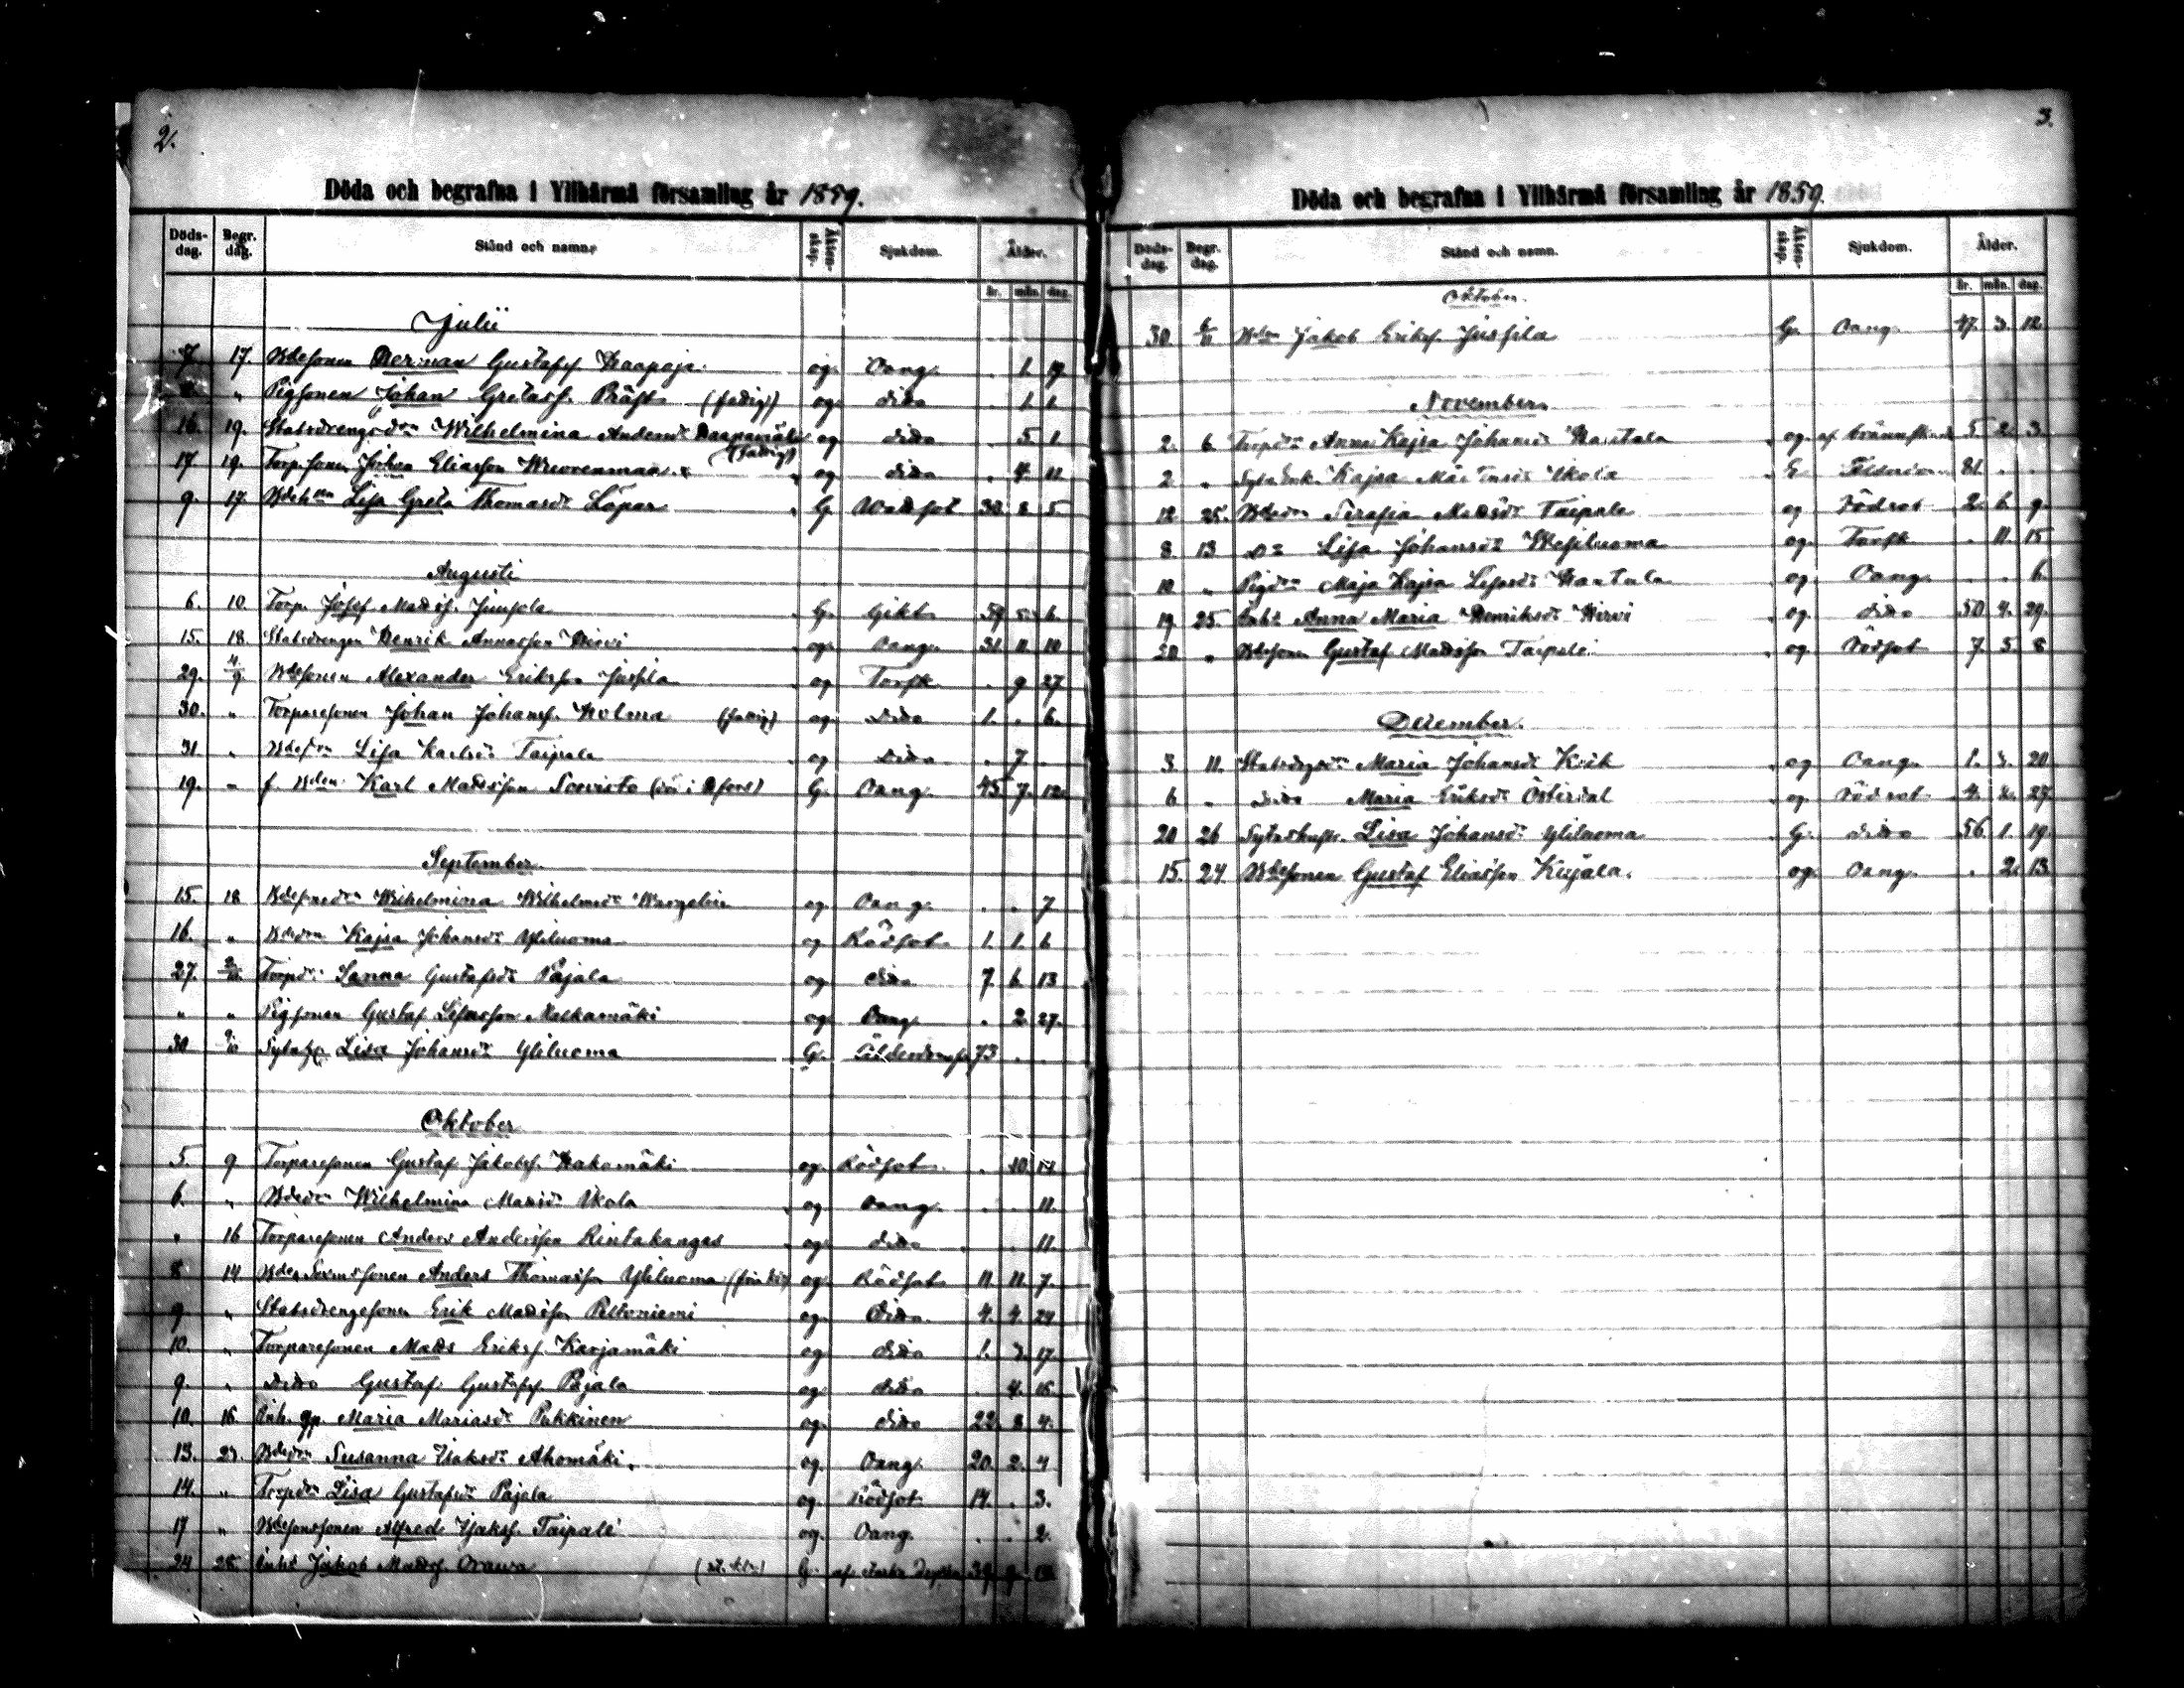 2.
Döda och begrafna i Ylihärmä församling år 1859.
Döds-dag. Begr. dag. Stånd och namn. Äkten-skap. Sjukdom. Ålder.
år. mån. dag.
Julii
7. 17. Bdesonen Herman Gustafsf. Haapoja og Oang. . 1. 17.
" Pigsonen Johan Gretasf. Präst (fattig) og dito . 1. 1.
16. 19. Statsdrengsdr Wilhelmina Andersdr og dito . 5. 1.
(fattig)
17 19. Torp.sonen Johan Eliasson Wuorenmaa og dito . 4. 11.
9. 17. Bdeh Lisa Greta Thomasdr Löpar G. Wattsot 30. 8. 5
Augusti
6. 10. Torp. Josef Mattsf. Junpola G. Gikt 59 5. 6.
15. 18. Statsdrengen Henrik Annasson Hirvi og Oang. 31. 11. 10
29. 4/9 Bdesonen Alexander Eriksson Jussila og Torsk . 9 27
30. " Torparesonen Johan Johansf. Holma (fattig) og Dito 1. . 6.
31. " Bdedr Lisa Karlsdr Taipale og Dito . 7 .
19. " f. Bden Karl Mattsson Soovisto G. Oang. 45. 7. 12.
September
15. 18 Wilhelmina Wilhelmsdr Wargelin og Oang. . . 7
16. " Bdedr Kajsa Johansdr Yliluoma og Rödsot 1. 1. 6
27. 2/10 Torpdr Sanna Gustafsdr Pajala og dito 7. 6. 13
" " Pigsonen Gustaf Lisasson Malkamäki og Oang. . 2. 27.
30 9/10 Lisa Johansdr Yliluoma G. Ålderdoms 73 . .
Oktober
5. 9 Torparesonen Gustaf Jakobsf. Hakomäki og Rödsot . 10. 14
6. " Bdedr Wilhelmina Mattsdr Ikola og Oang. . . 11.
" 16 Torparesonen Anders Andersson Rintakangas og dito . . 11.
8 14 Bde Sonen Anders Thomasson Yliluoma og Rödsot 11. 11. 7.
9 " Statsdrengesonen Erik Mattsson Peltoniemi og Dito 4. 4. 24
10. " Torparesonen Matts Eriksf. Karjamäki og dito 1. 3. 17.
9. " Dito Gustaf Gustafsf. Pajala og dito . 4. 15.
10. 16. Inh. gp. Maria Mariasdr Pukkinen og dito 22. 8 4.
13. 23. Bdedr Susanna Isaksdr Ahomäki og Oang. 20. 2. 4
14. " Torpdr Lisa Gustafsdr Pajala og Rödsot 14. . 3.
17 " Bdesonsonen Alfred Isaksf. Taipale og Oang. . . 2.
24 28. Inhs Jakob Mattsf. Orawa G. af 39. 9.
3.
Döda och begrafna i Ylihärmä församling år 1859.
Döds-dag. Begr. dag. Stånd och namn. Äkten-skap. Sjukdom. Ålder.
år. mån. dag.
Oktober.
30 6/11 Bden Jakob Eriksf. Jussila G. Oang. 47. 3. 12
November
2. 6. Torpdr Anna Kajsa Johansdr Hantala og. af brännskada 5. 2. 3.
2 " Kajsa Ikola E. 81. . .
12 25. Bdedr Serafia Mattsdr Taipale og Rödsot 2. 6. 9.
8. 13 Do Lisa Johansdr Wesiluoma og. Torsk . 11. 15
10 " Pigdr Maja Kajsa Lisasdr Hantala og. Oang. . . 6.
19 25. Inhs Anna Maria Henriksdr Hirvi og. dito 50. 4. 29.
20 " Bdesonen Gustaf Mattsson Taipale og. Rödsot 7. 5. 8
December.
3. 11. Maria Johansdr Kock og Oang. 1. 3. 20
6 " dito Maria Eriksdr Österdal og. Rödsot 4. 2. 27.
20 26 Lisa Johansdr Yliluoma G. dito 56. 1. 19.
15. 24 Bdesonen Gustaf Eliasson Kujala. og. Oang. . 2. 13.